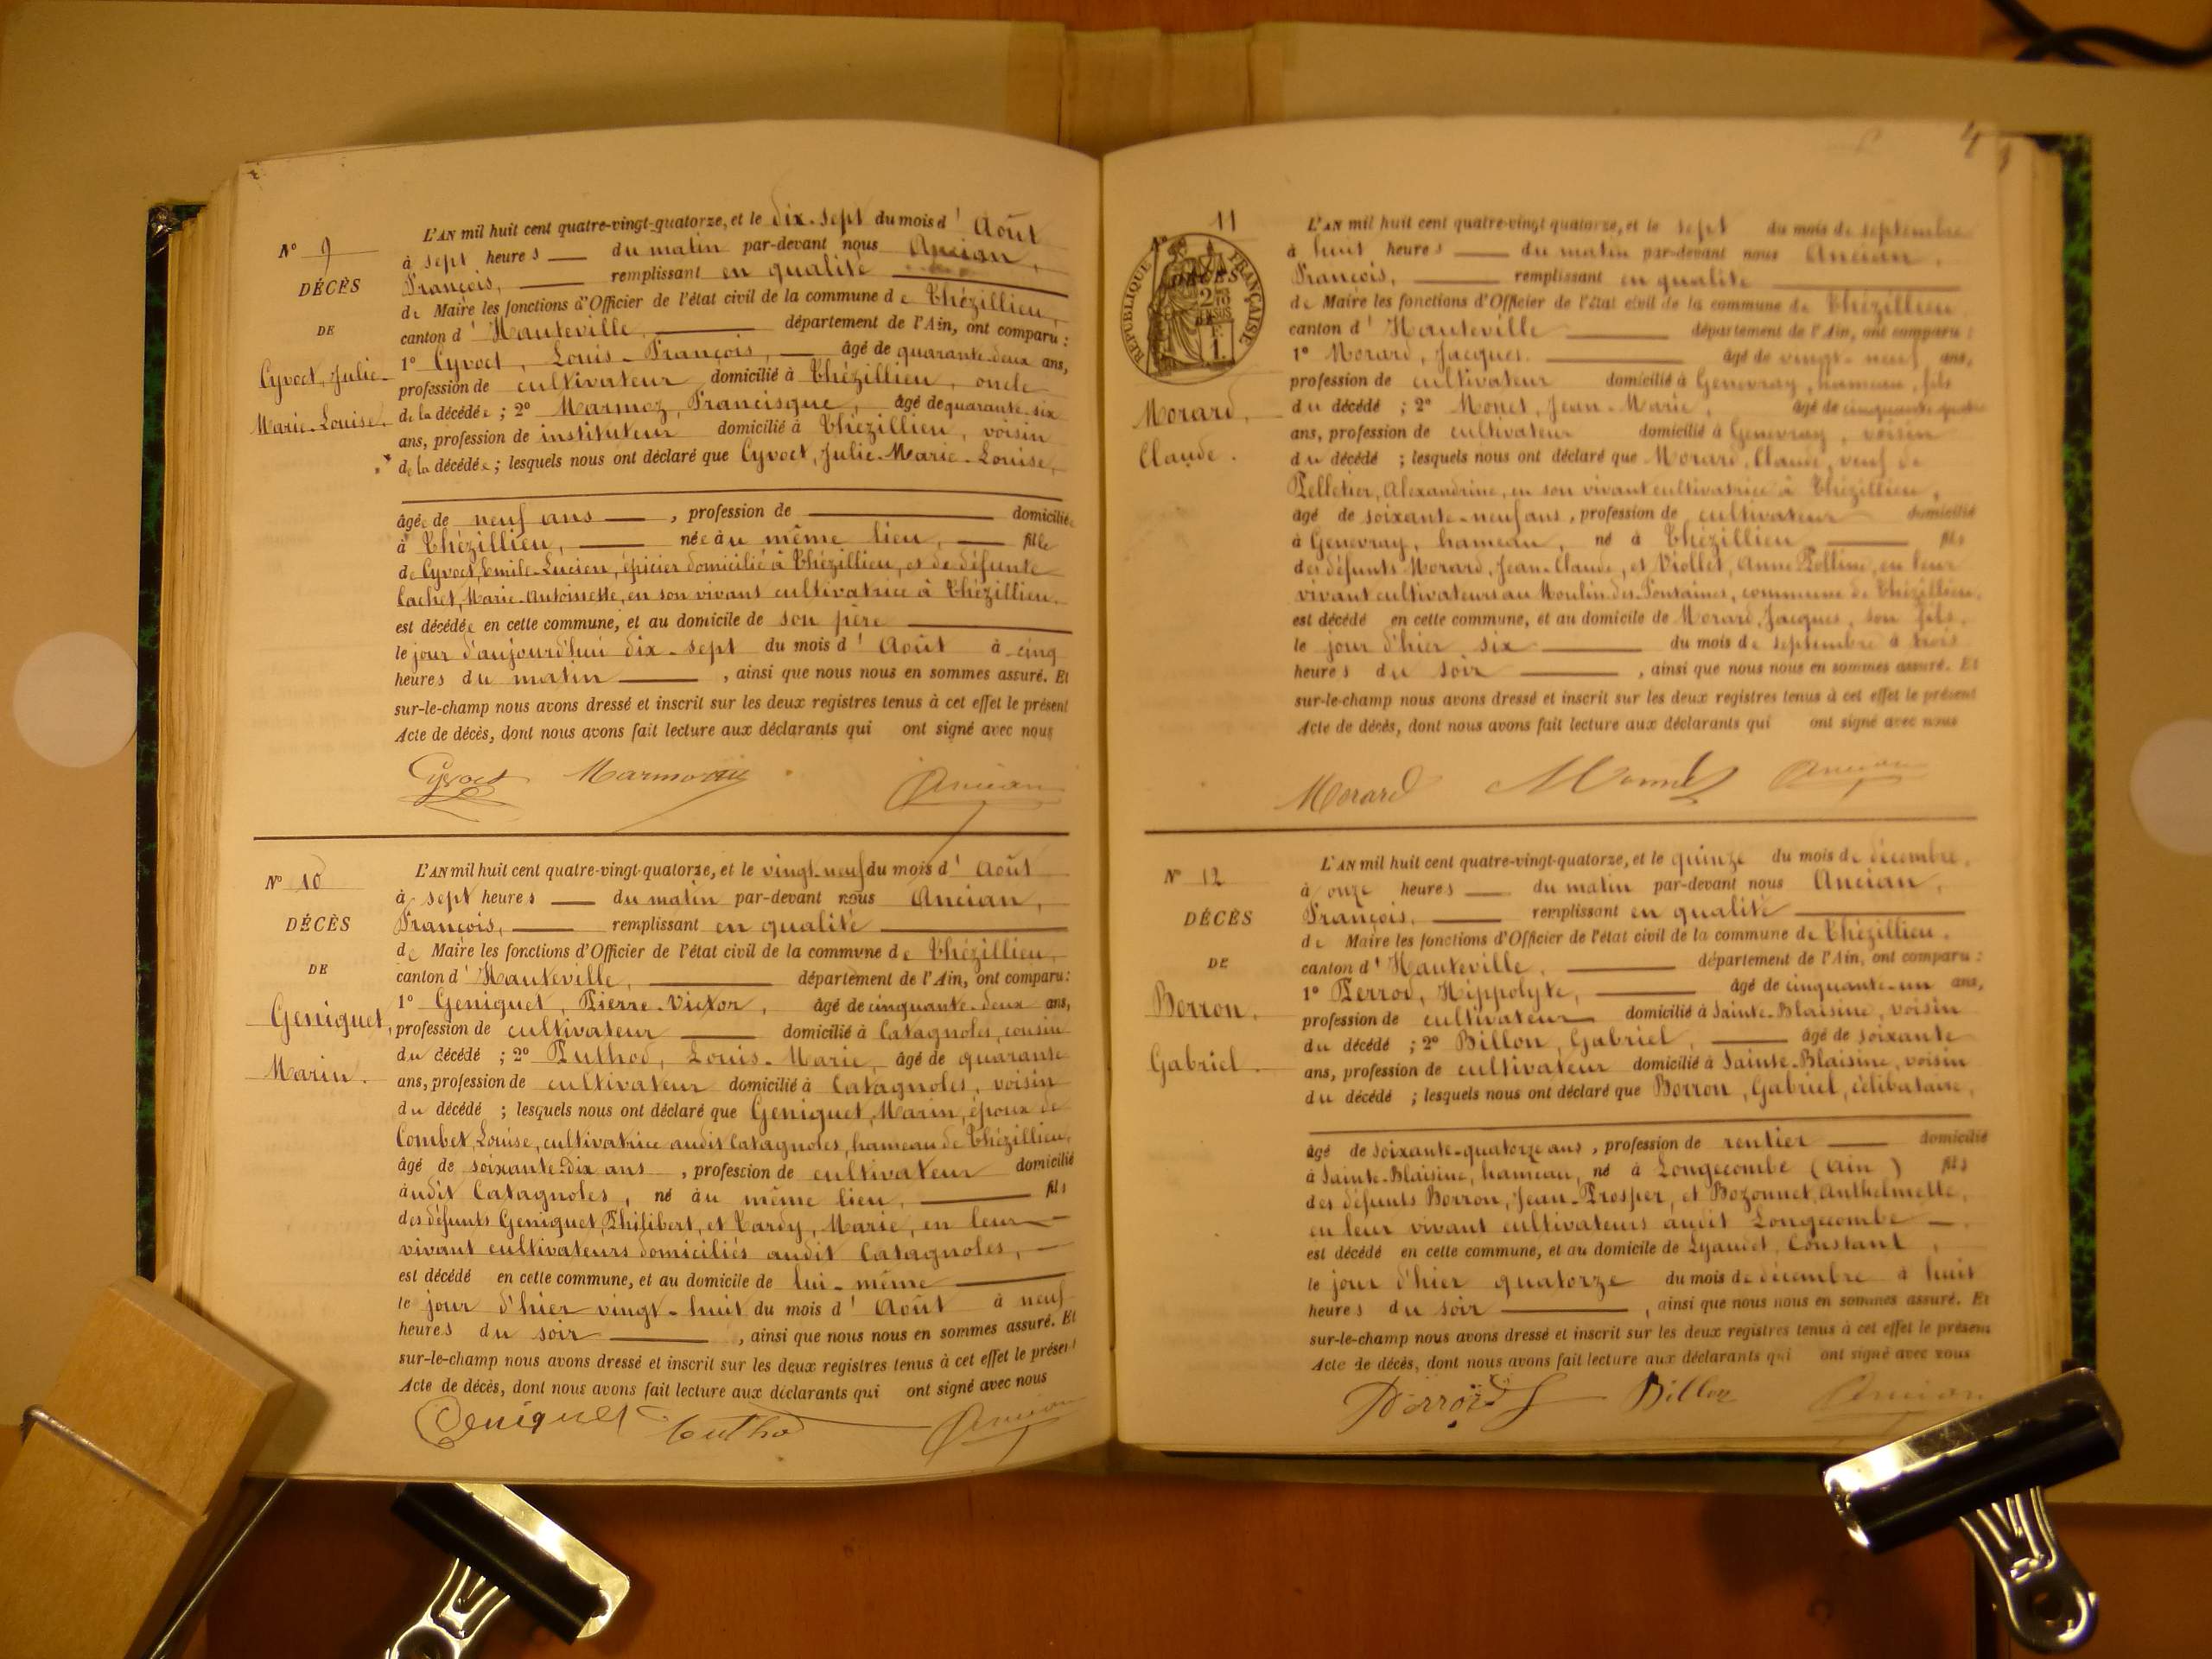 N° 9
DÉCÈS
DE
Cyvoct, Julie-
Marie-Louise.
L'AN mil huit cent quatre-vingt-quatorze, et le dix-sept du mois d'Août
à sept heures du matin par-devant nous Ancian,
François, remplissant en qualité
de Maire les fonctions d'Officier de l'état civil de la commune de Thézillieu,
canton d'Hauteville, département de l'Ain, ont comparu :
1° Cyvoct, Louis-François, âgé de quarante-deux ans,
profession de cultivateur domicilié à Thézillieu, oncle
de la décédée ; 2° Marmoz, Francisque, âgé de quarante-six
ans, profession de instituteur domicilié à Thézillieu, voisin
de la décédée ; lesquels nous ont déclaré que Cyvoct, Julie-Marie-Louise,
âgée de neuf ans, profession de domiciliée
à Thézillieu, née au même lieu, fille
de Cyvoct, Emile-Lucien, épicier domicilié à Thézillieu, et de défunte
Cachet, Marie-Antoinette, en son vivant cultivatrice à Thézillieu.
est décédée en cette commune, et au domicile de son père
le jour d'aujourd'hui dix-sept du mois d'Août à cinq
heures du matin, ainsi que nous nous en sommes assuré. Et
sur-le-champ nous avons dressé et inscrit sur les deux registres tenus à cet effet le présent
Acte de décès, dont nous avons fait lecture aux déclarants qui ont signé avec nous
Cyvoct Ancian
N° 10
DÉCÈS
DE
Geniquet,
Marin.
L'AN mil huit cent quatre-vingt-quatorze, et le vingt-neuf du mois d'Août
à sept heures du matin par-devant nous Ancian,
François, remplissant en qualité
de Maire les fonctions d'Officier de l'état civil de la commune de Thézillieu,
canton d'Hauteville, département de l'Ain, ont comparu :
1° Geniquet, Pierre-Victor, âgé de cinquante-deux ans,
profession de cultivateur domicilié à Catagnoles, cousin
du décédé ; 2° Puthod, Louis-Marie, âgé de quarante
ans, profession de cultivateur domicilié à Catagnoles, voisin
du décédé ; lesquels nous ont déclaré que Geniquet, Marin, époux de
Combet, Louise, cultivatrice audit Catagnoles, hameau de Thézillieu,
âgé de soixante-dix ans, profession de cultivateur domicilié
audit Catagnoles, né au même lieu, fils
des défunts Geniquet, Philibert, et Tardy, Marie, en leur
vivant cultivateurs domiciliés audit Catagnoles,
est décédé en cette commune, et au domicile de lui-même
le jour d'hier vingt-huit du mois d'Août à neuf
heures du soir, ainsi que nous nous en sommes assuré. Et
sur-le-champ nous avons dressé et inscrit sur les deux registres tenus à cet effet le présent
Acte de décès, dont nous avons fait lecture aux déclarants qui ont signé avec nous
Geniquet Puthod Ancian
4
11
RÉPUBLIQUE FRANÇAISE
DÉCÈS
Morard,
Claude.
L'AN mil huit cent quatre-vingt-quatorze, et le sept du mois de septembre
à huit heures du matin par-devant nous Ancian,
François, remplissant en qualité
de Maire les fonctions d'Officier de l'état civil de la commune de Thézillieu,
canton d'Hauteville département de l'Ain, ont comparu :
1° Morard, Jacques. âgé de vingt-neuf ans,
profession de cultivateur domicilié à Genevray, hameau, fils
du décédé ; 2° Monet, Jean-Marie, âgé de cinquante-quatre
ans, profession de cultivateur domicilié à Genevray, voisin
du décédé ; lesquels nous ont déclaré que Morard, Claude, veuf de
Pelletier, Alexandrine, en son vivant cultivatrice à Thézillieu,
âgé de soixante-neuf ans, profession de cultivateur domicilié
à Genevray, hameau, né à Thézillieu, fils
des défunts Morard, Jean-Claude, et Viollet, Anne Polline, en leur
vivant cultivateurs au Moulin-des-Fontaines, commune de Thézillieu,
est décédé en cette commune, et au domicile de Morard, Jacques, son fils,
le jour d'hier six du mois de septembre à trois
heures du soir, ainsi que nous nous en sommes assuré. Et
sur-le-champ nous avons dressé et inscrit sur les deux registres tenus à cet effet le présent
Acte de décès, dont nous avons fait lecture aux déclarants qui ont signé avec nous
Morard Ancian
N° 12
DÉCÈS
DE
Borron,
Gabriel.
L'AN mil huit cent quatre-vingt-quatorze, et le quinze du mois de décembre,
à onze heures du matin par-devant nous Ancian,
François, remplissant en qualité
de Maire les fonctions d'Officier de l'état civil de la commune de Thézillieu,
canton d'Hauteville, département de l'Ain, ont comparu :
1° Perrod, Hippolyte, âgé de cinquante-un ans,
profession de cultivateur domicilié à Sainte-Blaisine, voisin
du décédé ; 2° Billon, Gabriel, âgé de soixante
ans, profession de cultivateur domicilié à Sainte-Blaisine, voisin
du décédé ; lesquels nous ont déclaré que Borron, Gabriel, célibataire,
âgé de soixante-quatorze ans, profession de rentier domicilié
à Sainte-Blaisine, hameau, né à Longecombe (Ain) fils
des défunts Borron, Jean-Prosper, et Bozonnet, Anthelmette,
en leur vivant cultivateurs audit Longecombe.
est décédé en cette commune, et au domicile de Lyaudet, Constant,
le jour d'hier quatorze du mois de décembre à huit
heures du soir, ainsi que nous nous en sommes assuré. Et
sur-le-champ nous avons dressé et inscrit sur les deux registres tenus à cet effet le présent
Acte de décès, dont nous avons fait lecture aux déclarants qui ont signé avec nous
Perrod Billon Ancian